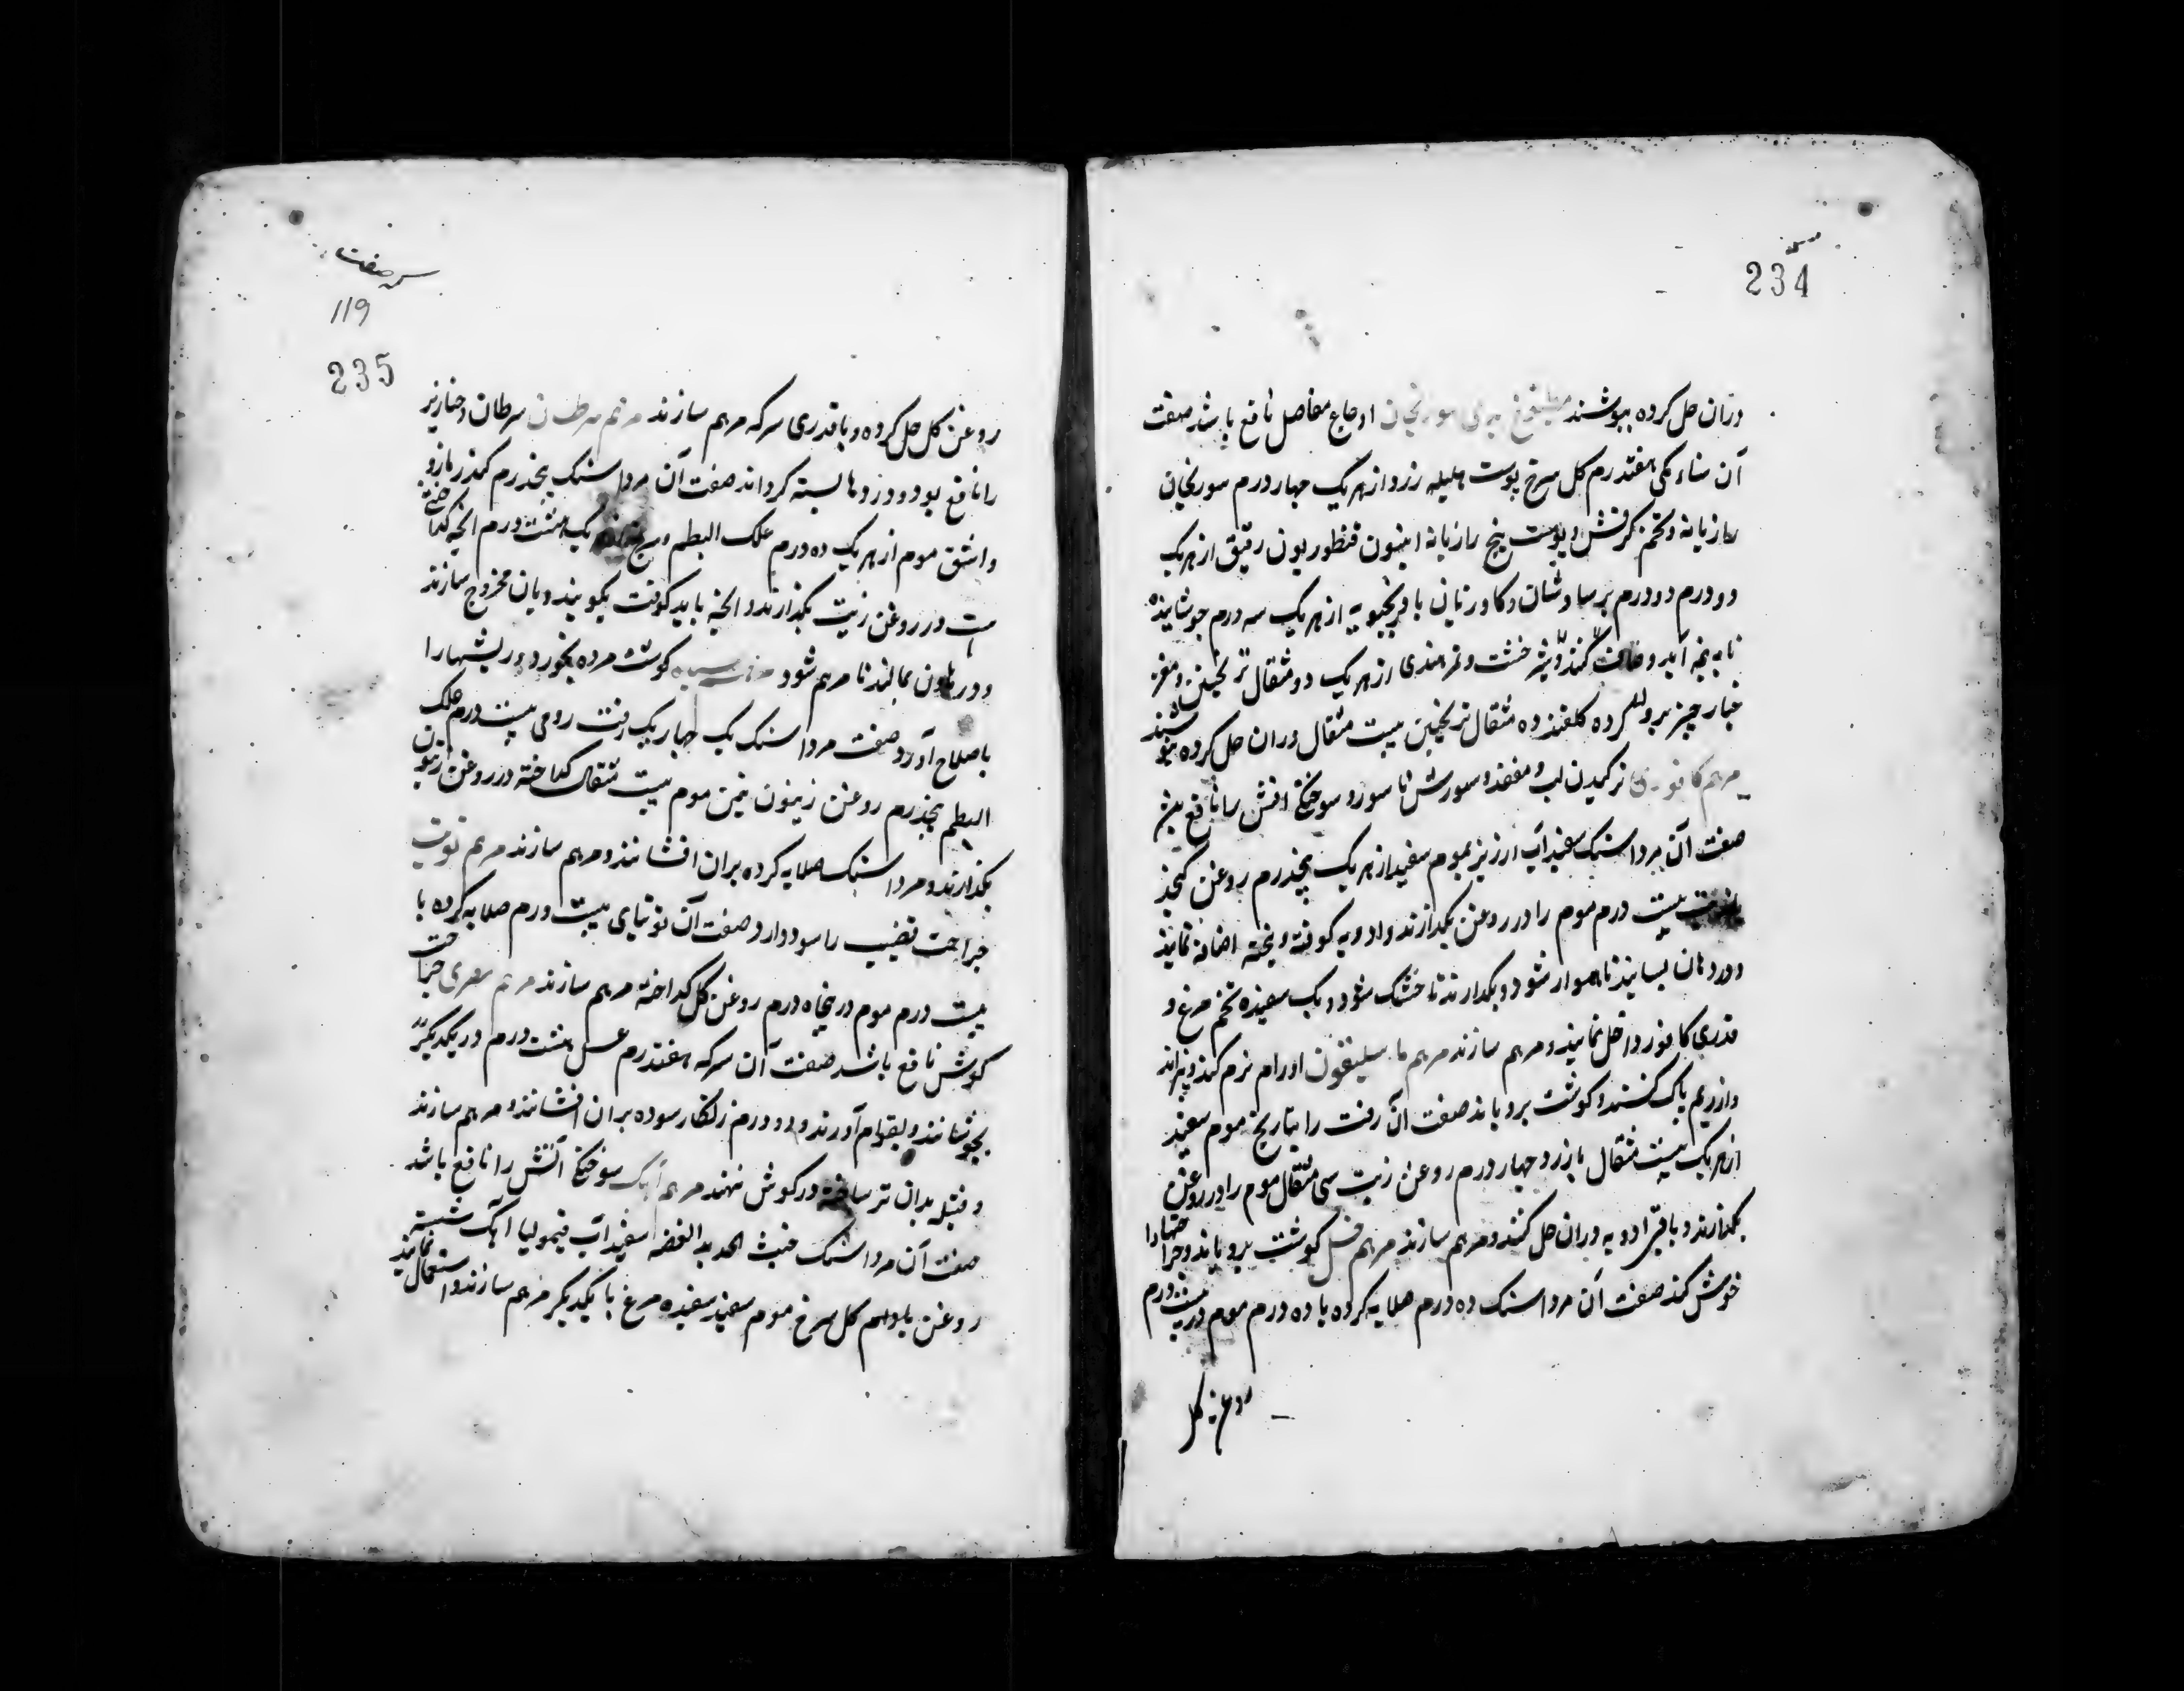 234
دران حل کرده بنوشند مطبوخ سورنجان اوجاع مفاصل نافع باشد صفت
آن سناء مکی هفتدرم کل سرخ پوست هلیله زرد از هریک چهار درم سورنجان
رازیانه و تخم کرفس و پوست بیخ رازیانه انیسون قنطوریون رقیق از هریک
دو درم دو درم پرسیاوشان و کاوزبان بادرنجبویه از هریک سه درم جوشانیده
تا به نیمه آید و صاف کنند و شیرخشت و تمرهندی از هریک دو مثقال ترنجبین و مغز
خیارچنبر برو کرده کلقند ده مثقال ترنجبین بیست مثقال دران حل کرده بنوشند
مرهم کافوری ترکیدن لب و مقعد و سورش ناسور و سوختکی اتش را نافع بود
صفت آن مرداسنک سفیداب ارزیز موم سفید از هریک پنجدرم روغن کنجد
بیست درم موم را در روغن بکدازند و ادویه کوفته و بیخته اضافه نمایند
و در هاون بسایند تا هموار شود و بکدارند تا خشک شود و یک سفیده تخم مرغ و
قدری کافور داخل نمایند و مرهم سازند مرهم باسلیقون اورام نرم کند و بپزاند
و از ریم پاک کند و کوشت برویاند صفت آن زفت راتیانج موم سفید
از هریک بیست مثقال بارزد چهار درم روغن زیت سی مثقال موم را در روغن
بکدازند و باقی ادویه دران حل کنند و مرهم سازند مرهم خل کوشت برویاند و جراحتها را
خوش کند صفت آن مرداسنک ده درم صلایه کرده با ده درم موم در بیست درم
روغن کل
صفت
119
235
روغن کل حل کرده و با قدری سرکه مرهم سازند مرهم سرطان سرطان و خنازیر
را نافع بود و زودها بسته کرداند صفت آن مرداسنک پنجدرم کندر مازو
و اشق موم از هریک ده درم علک البطم هریک هشت درم انچه کداختنی
است در روغن زیت بکدازند و انچه باید کوفت بکوبند و بان مخروج سازند
و در هاون بمالند تا مرهم شود مرهم سیاه کوشت مرده بخورد و ریشها را
باصلاح آورد صفت مرداسنک یک چهاریک زفت رومی بیست درم علک
البطم پنجدرم روغن زیتون نیمن موم بیست مثقال کداخته در روغن زیتون
بکدارند و مرداسنک صلایه کرده بران افشانند و مرهم سازند مرهم توتیا
جراحت قضیب را سود دارد صفت آن توتیای بیست درم صلایه کرده با
بیست درم موم در پنجاه درم روغن کل کداخته مرهم سازند مرهم مصری جراحت
کوش نافع باشد صفت آن سرکه هفتدرم عسل هشت درم در یکدیکر
بجوشانند و بقوام آورند و دو درم زنکار سوده بران افشانند و مرهم سازند
و فتیله بدان تر ساخته در کوش نهند مرهم آهک سوختکی آتش را نافع باشد
صفت آن مرداسنک خبث الحدید الفضه سفیداب قیمولیا آهک شسته
روغن بادام کل سرخ موم سفید سفیده مرغ با یکدیکر مرهم سازند و استعمال نمایند